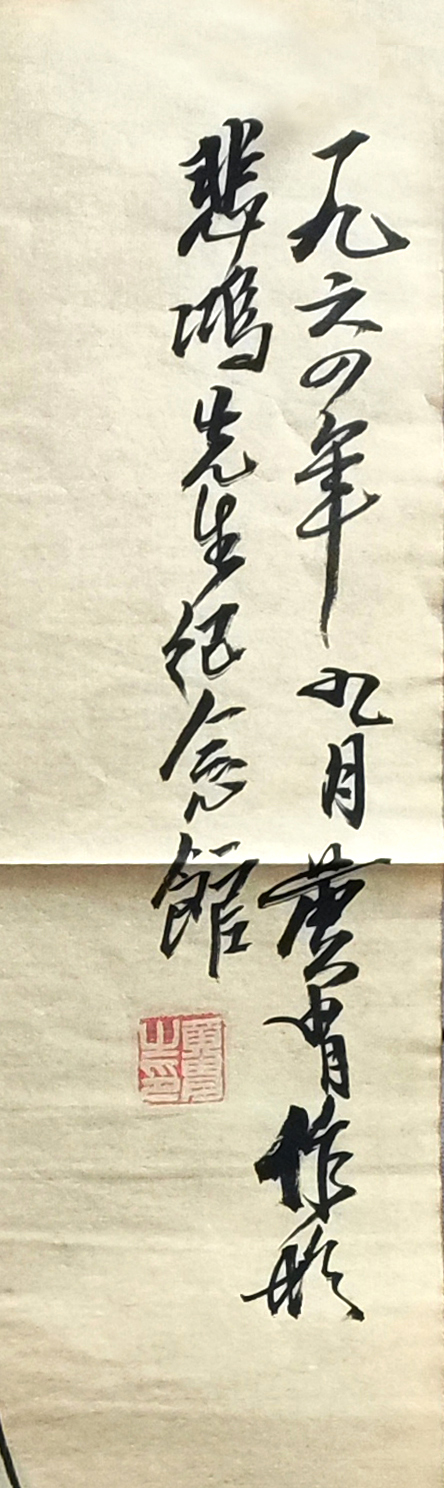 一九六四年九月黄胄作於
悲鴻先生纪念館
黄胄之印